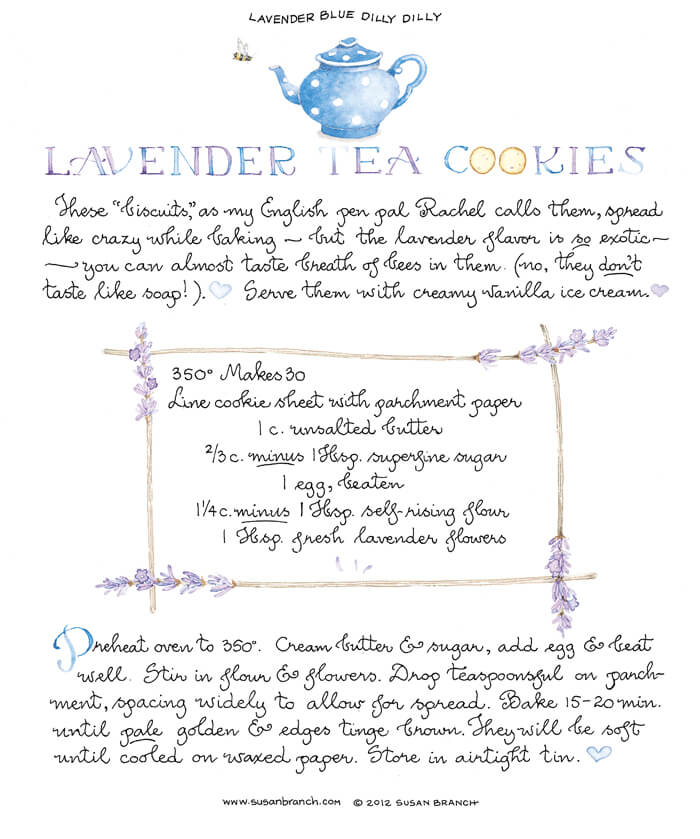 LAVENDER BLUE DILLY DILLY
LAVENDER TEA COOKIES
These "biscuits," as my English pen pal Rachel calls them, spread
like crazy while baking ~ but the lavender flavor is so exotic ~
~ you can almost taste breath of bees in them. (no, they don't
taste like soap!). Serve them with creamy vanilla ice cream.
350° Makes 30
Line cookie sheet with parchment paper
1 c. unsalted butter
2/3 c. minus 1 Tbsp. superfine sugar
1 egg, beaten
1 1/4 c. minus 1 Tbsp. self-rising flour
1 Tbsp. fresh lavender flowers
Preheat oven to 350°. Cream butter & sugar, add egg & beat
well. Stir in flour & flowers. Drop teaspoonsful on parch-
ment, spacing widely to allow for spread. Bake 15-20 min.
until pale golden & edges tinge brown. They will be soft
until cooled on waxed paper. Store in airtight tin.
www.susanbranch.com © 2012 SUSAN BRANCH